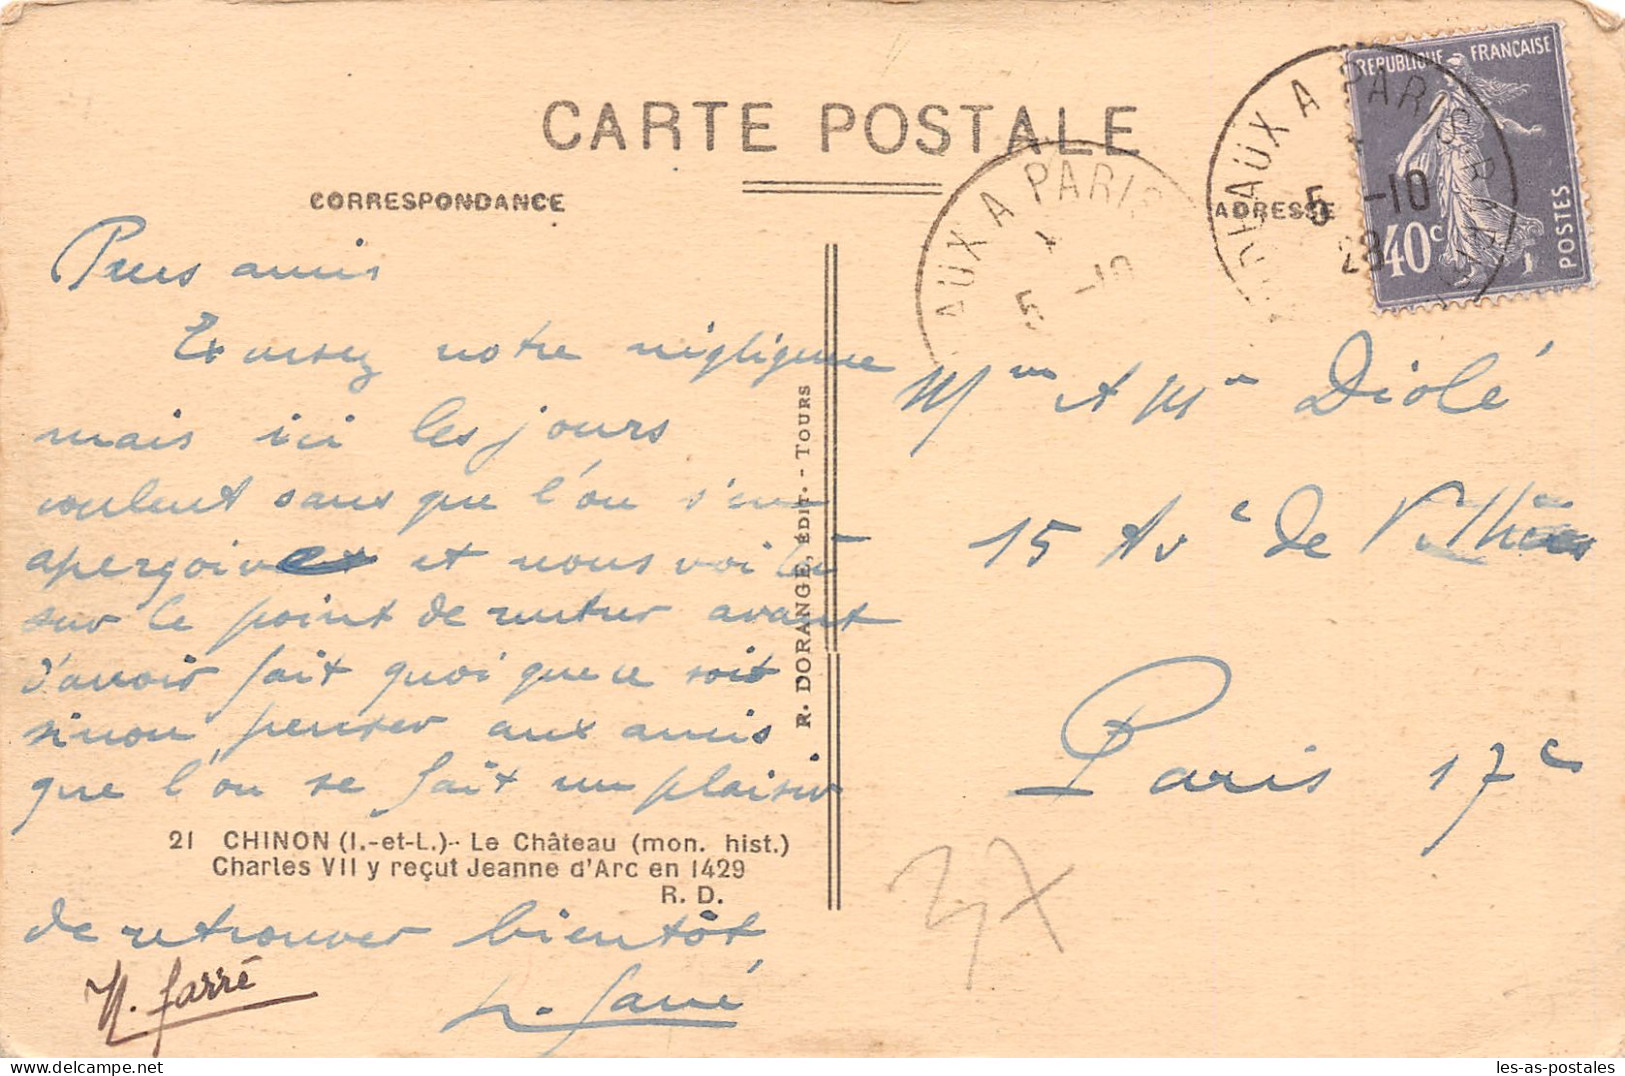 CARTE POSTALE
CORRESPONDANCE
ADRESSE
REPUBLIQUE FRANÇAISE
40c
POSTES
AUX A PARIS
5 -10
28
AUX A PARIS
5 -10
amis
Excusez notre négligence
mais ici les jours
coulent sans que l'on s'en
aperçoive et nous voilà
sur le point de rentrer avant
d'avoir fait quoi que ce soit
sinon penser aux amis
que l'on se fait un plaisir
21 CHINON (I.-et-L.)-- Le Château (mon. hist.)
Charles VII y reçut Jeanne d'Arc en 1429
R. D.
de retrouver bientôt
H. Farré
Farré
R. DORANGE, ÉDIT. - TOURS
Diolé
15 Ave de Villiers
Paris 17e